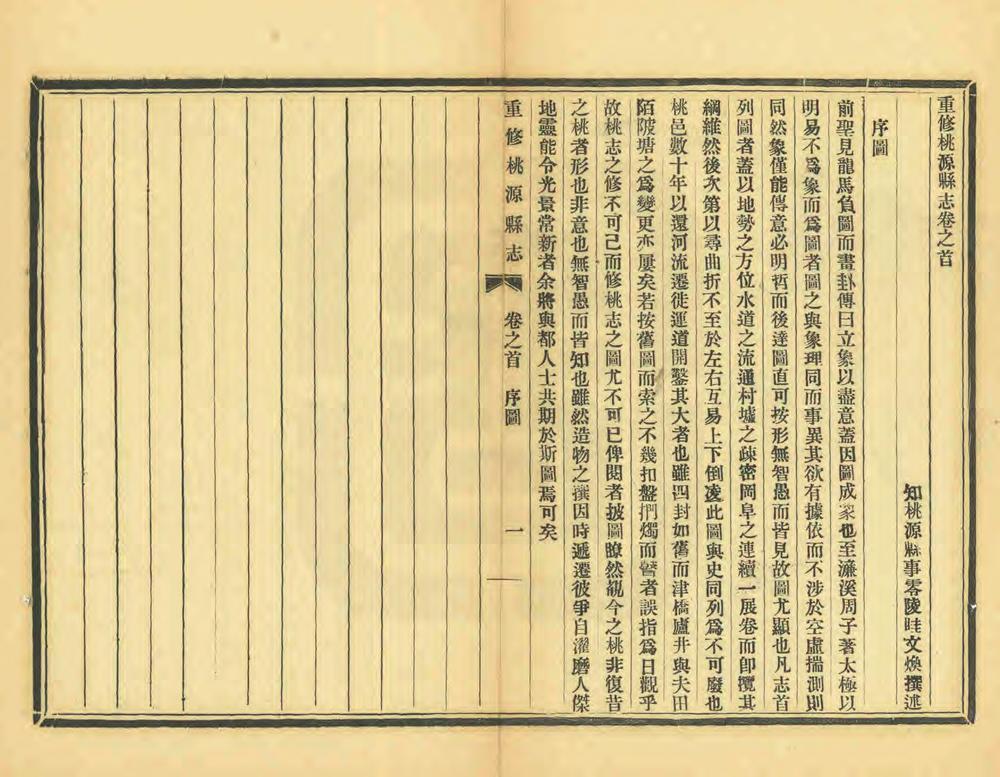 重修桃源縣志卷之首
知桃源縣事零陵眭文煥撰述
序圖
前聖見龍馬負圖而畫卦傳曰立象以盡意蓋因圖成象也至濂溪周子著太極以
明易不爲象而爲圖者圖之與象理同而事異其欲有據依而不涉於空虛揣測則
同然象僅能傳意必明哲而後達圖直可按形無智愚而皆見故圖尤顯也凡志首
列圖者蓋以地勢之方位水道之流通村墟之疎密岡阜之連續一展卷而卽攬其
綱維然後次第以尋曲折不至於左右互易上下倒凌此圖與史同列爲不可廢也
桃邑數十年以還河流遷徙運道開鑿其大者也雖四封如舊而津橋廬井與夫田
陌陂塘之爲變更亦屢矣若按舊圖而索之不幾扣盤捫燭而瞽者誤指爲日觀乎
故桃志之修不可已而修桃志之圖尤不可已俾閱者披圖瞭然覩今之桃非復昔
之桃者形也非意也無智愚而皆知也雖然造物之撰因時遞遷彼爭自濯磨人傑
地靈能令光景常新者余將與都人士共期於斯圖焉可矣
重修桃源縣志 卷之首 序圖 一